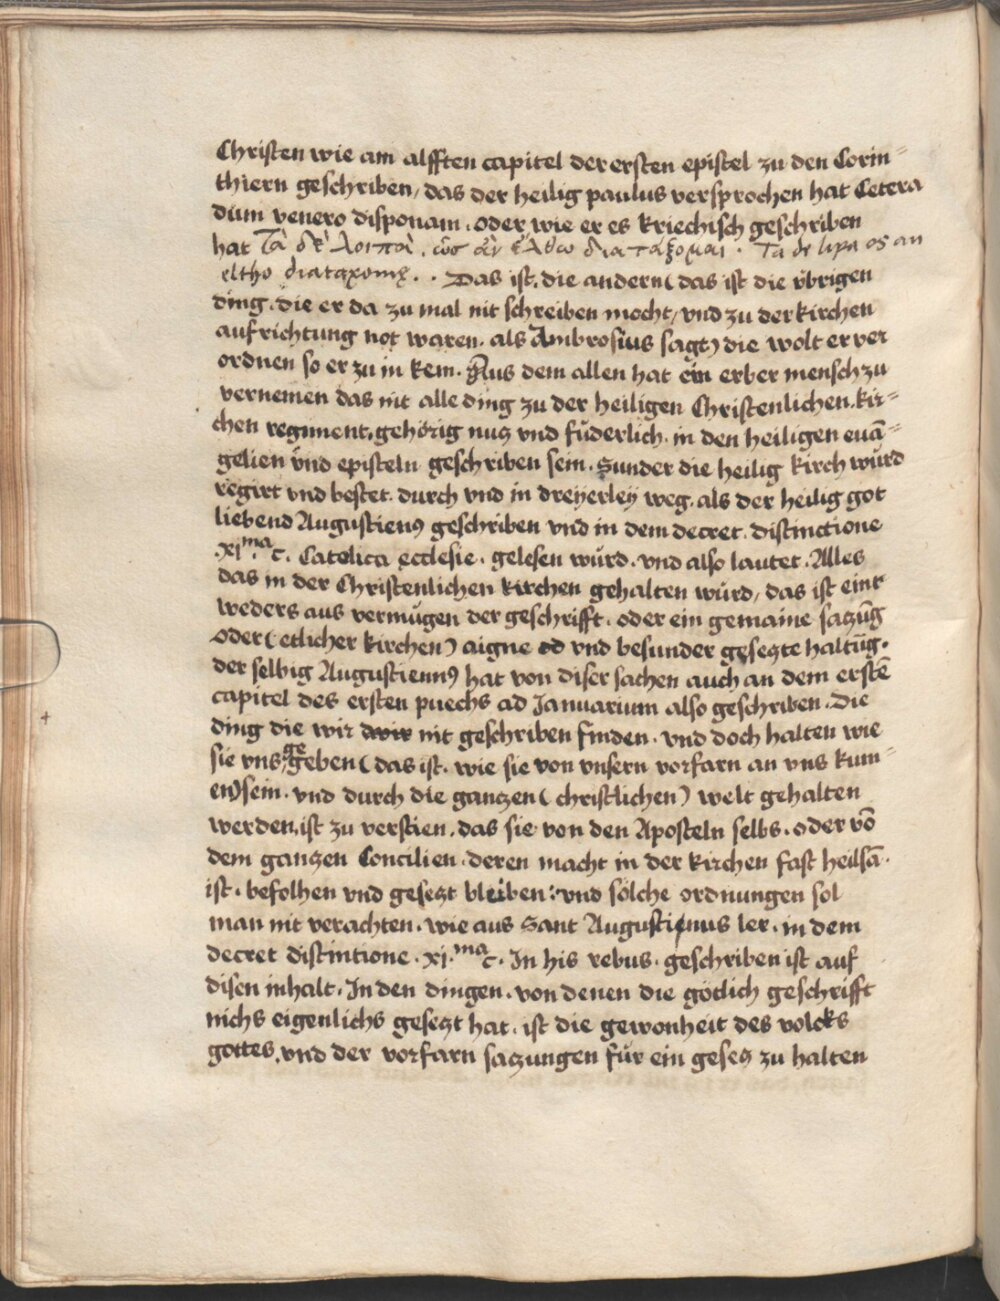 Christen wie am alfften capitel der ersten epistel zu den Corin=
thiern geschriben, das der heilig paulus versprochen hat Cetera
dum venero disponam. oder wie er es kriechisch geschriben
hat Τὰ δὲ λοιπὰ, ὡς ἂν ἔλθω διατάξομαι. Ta de lipa os an
eltho diataxomę.. Das ist, die andern (das ist die vbrigen
ding, die er da zu mal nit schreiben mocht, vnd zu der kirchen
aufrichtung not waren. als Ambrosius sagt) die wolt er ver
ordnen so er zu in kem. Aus dem allen hat ein erber mensch zu
vernemen das nit alle ding zu der heiligen Christenlichen. kir=
chen regiment, gehörig nuz vnd füderlich. in den heiligen euā=
gelien vnd episteln geschriben sein. Sunder die heilig kirch würd
regirt vnd bestet. durch vnd in dreyerley weg. als der heilig got
liebend Augustienꝰ geschriben vnd in dem decret. distinctione
.xi.ma c. Catolica ecclesie. gelesen würd. vnd also lautet. Alles
das in der Christenlichen kirchen gehalten würd, das ist eint
weders aus vermügen der geschrifft. oder ein gemaine sazūg
oder (etlicher kirchen) aigne od vnd besunder gesezte haltūg.
der selbig Augustiennꝰ hat von diser sachen auch an dem erstē
capitel des ersten puechs ad Januarium also geschriben. Die
ding die wir dwir nit geschriben finden. vnd doch halten wie
sie vns gegeben (das ist. wie sie von vnsern vorfarn an vns kum=
en) sein. vnd durch die ganzen (christlichen) welt gehalten
werden, ist zu verstien. das sie von den Aposteln selbs. oder vō
dem ganzen Concilien. deren macht in der kirchen fast heilsā.
ist. befolhen vnd gesezt bleiben: vnd sölche ordnungen sol
man nit verachten. wie aus Sant Augustinus ler. in dem
decret distintione .xj.ma c. In his rebus. geschriben ist auf
disen inhalt. In den dingen. von denen die götlich geschrifft
nichs eigenlichs gesezt hat. ist die gewonheit des volcks
gottes, vnd der vorfarn sazungen für ein gesez zu halten